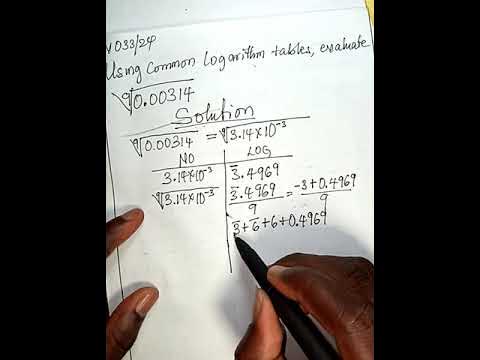 V033/24
Using Common Logarithm tables, evaluate
⁹√0.00314
Solution
⁹√0.00314 = ⁹√3.14×10⁻³
NO LOG
3.14×10⁻³ 3̅.4969
⁹√3.14×10⁻³ 3̅.4969/9 = -3+0.4969/9
3̅+6̅+6+0.4969